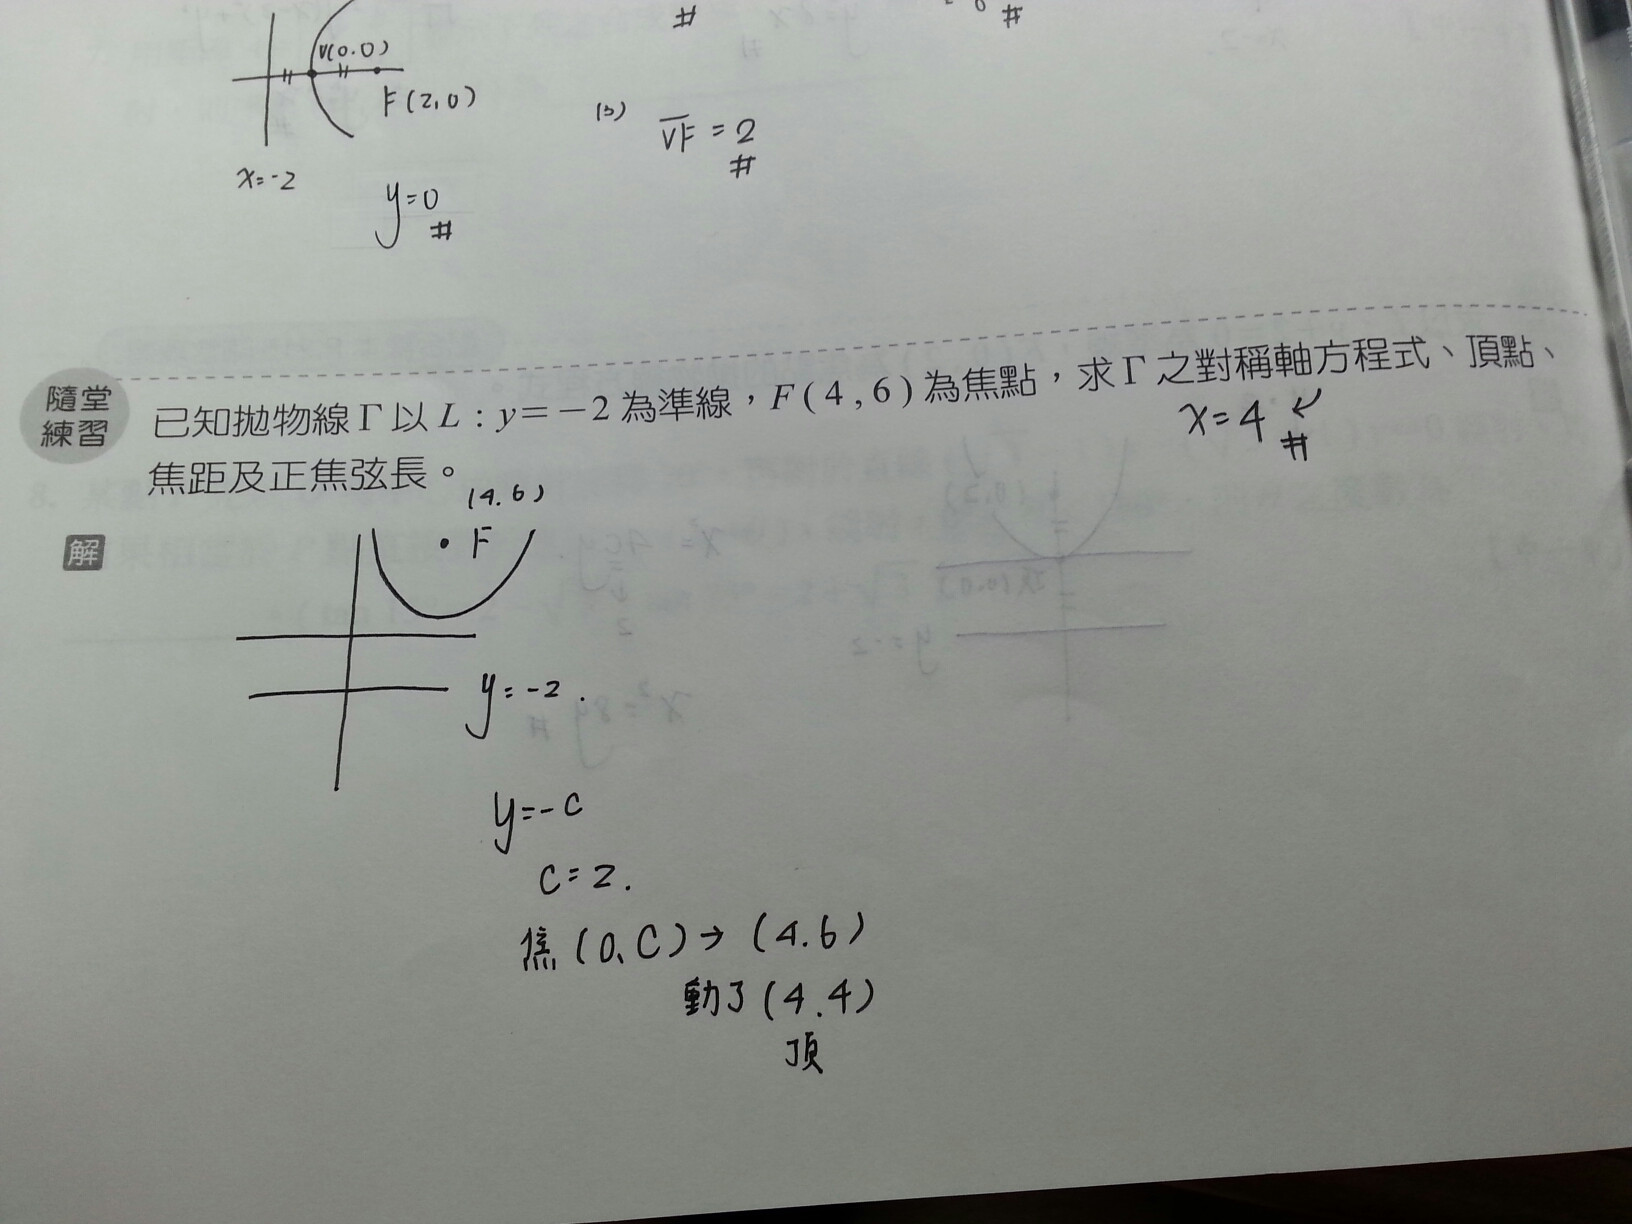 V(0.0)
F(2,0)
x=-2
y=0
#
(3) VF=2
#
隨堂練習
已知拋物線Γ以L:y=-2為準線,F(4,6)為焦點,求Γ之對稱軸方程式、頂點、
x=4
#
焦距及正焦弦長。
解
(4.6)
F
y=-2.
y=-c
c=2.
焦(0,C)→(4.6)
動了(4.4)
頂